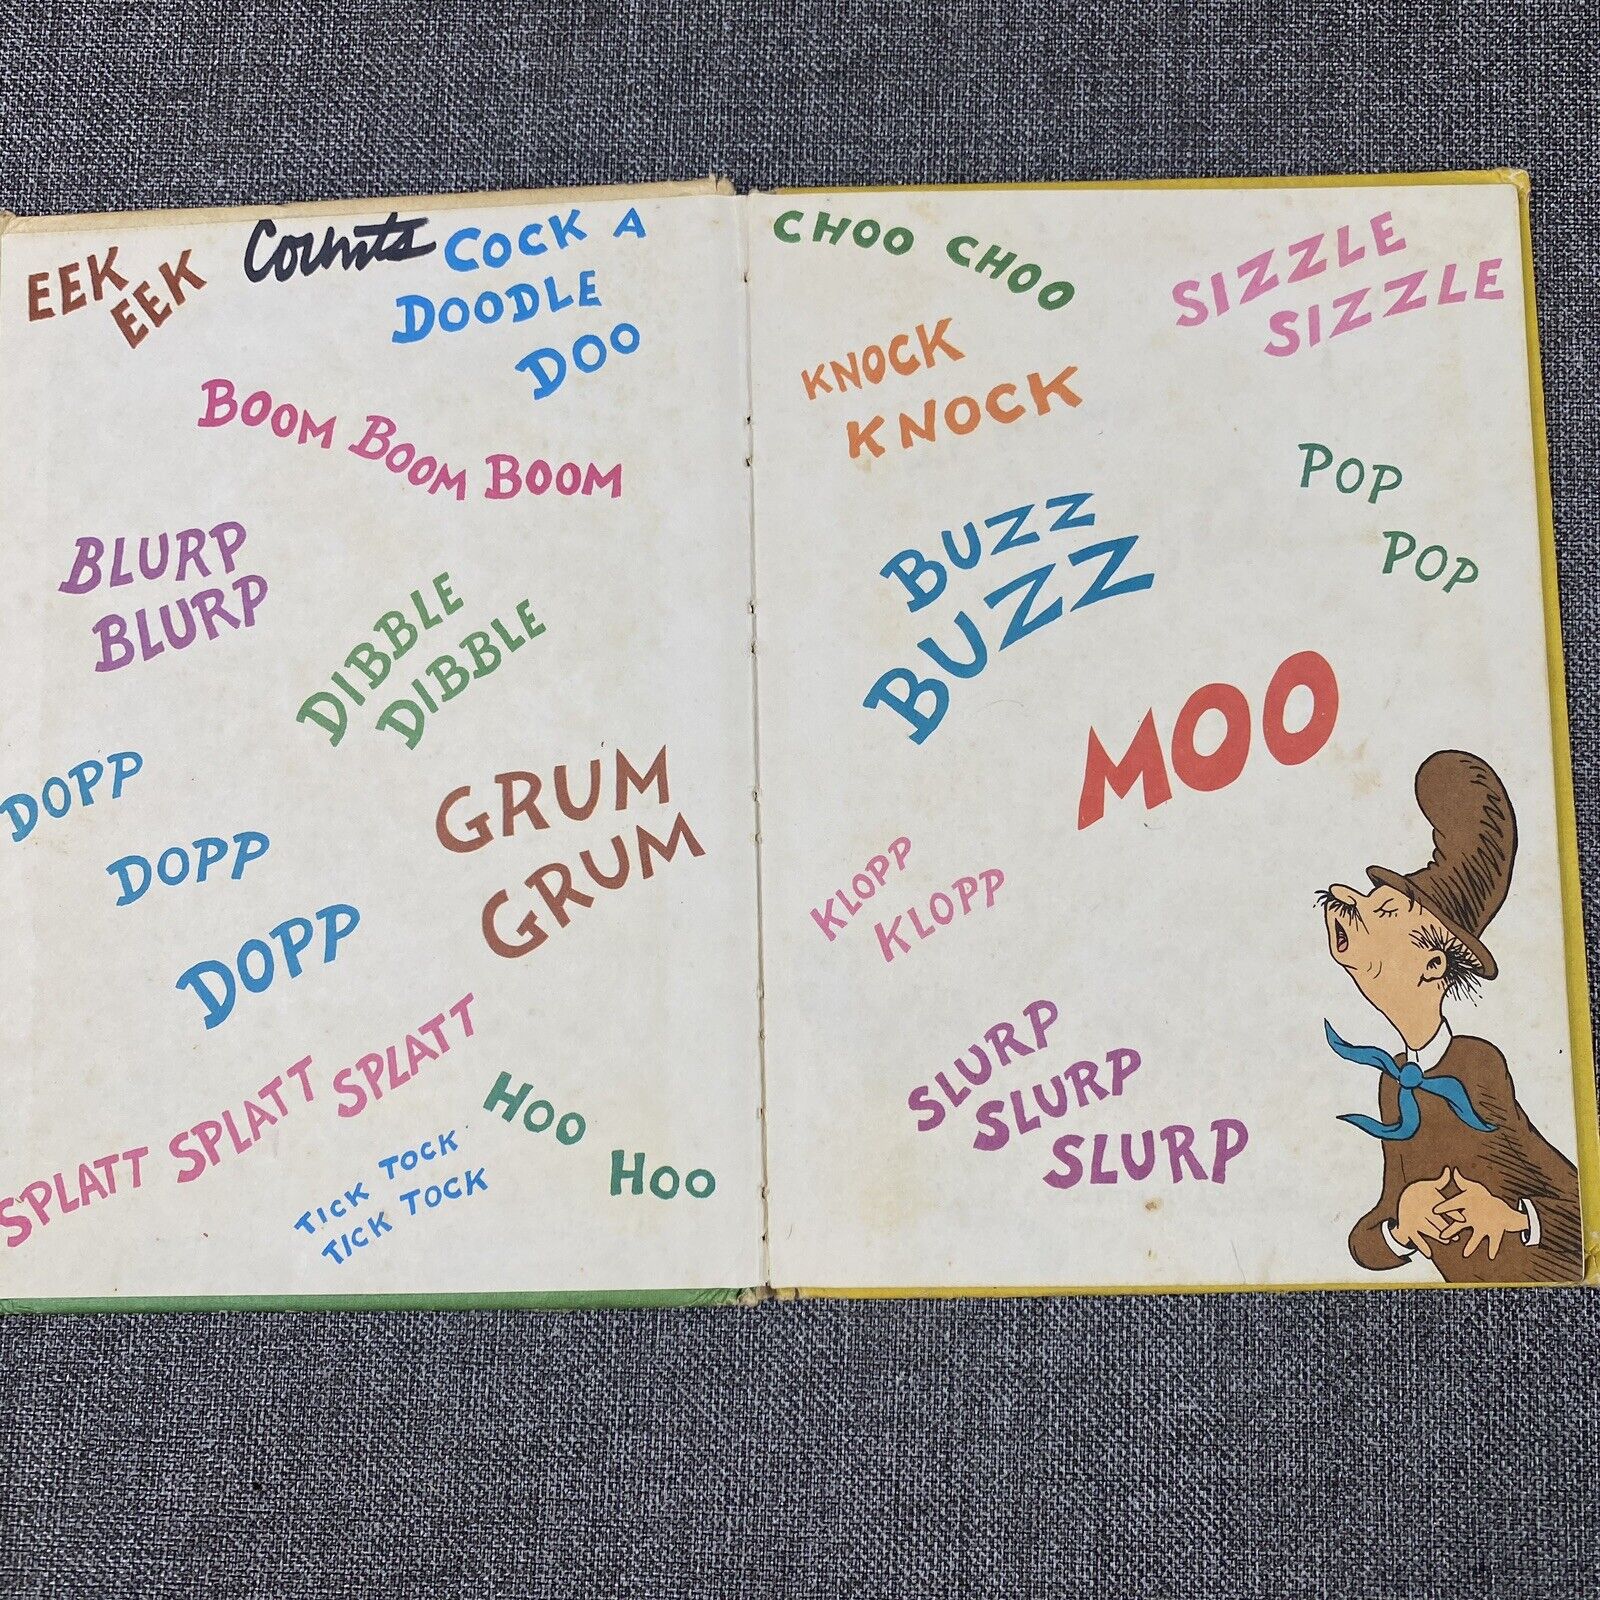 EEK
EEK
Counts
COCK A
DOODLE
DOO
BOOM BOOM BOOM
BLURP
BLURP
DIBBLE
DIBBLE
DOPP
DOPP
DOPP
GRUM
GRUM
SPLATT SPLATT SPLATT
TICK TOCK
TICK TOCK
HOO
HOO
CHOO CHOO
SIZZLE
SIZZLE
KNOCK
KNOCK
POP
POP
BUZZ
BUZZ
MOO
KLOPP
KLOPP
SLURP
SLURP
SLURP